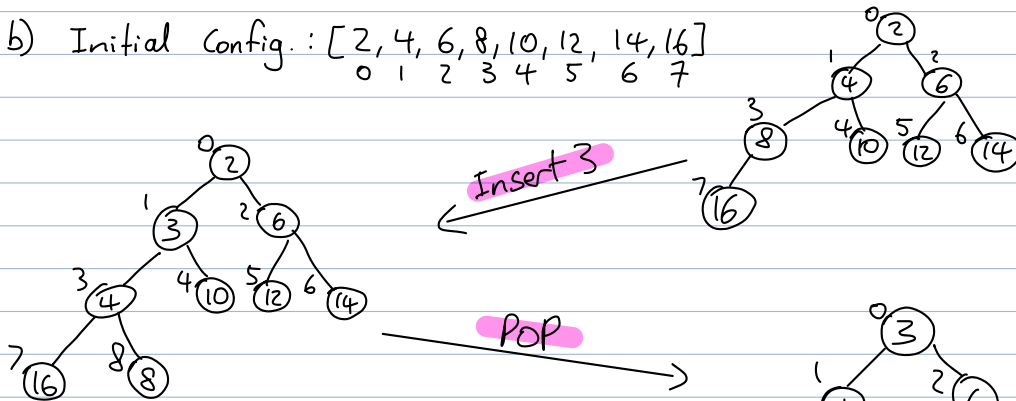 b) Initial Config. : [2, 4, 6, 8, 10, 12, 14, 16]
0 1 2 3 4 5 6 7
0 2
1 4 2 6
3 8 4 10 5 12 6 14
7 16
Insert 3
0 2
1 3 2 6
3 4 4 10 5 12 6 14
7 16 8 8
POP
0 3
1 2